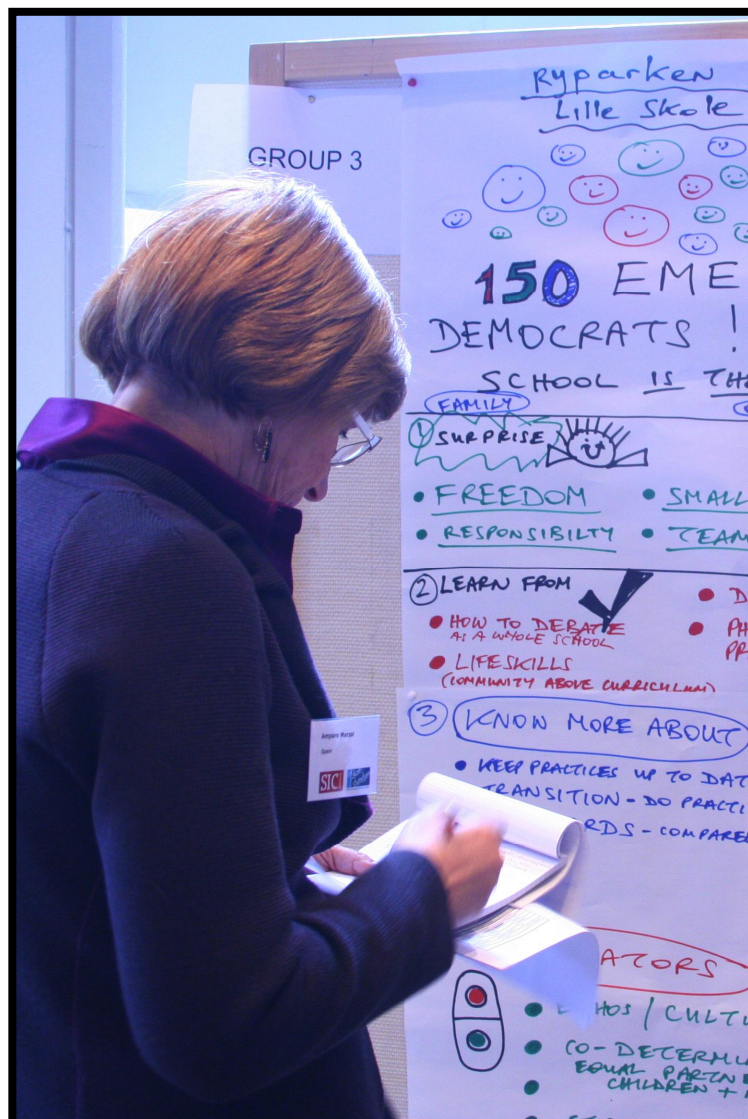 GROUP 3
Ryparken
Lille Skole
150 EME
DEMOCRATS !
SCHOOL IS TH
FAMILY
1 SURPRISE
• FREEDOM
• SMALL
• RESPONSIBILTY
• TEAM
2 LEARN FROM
• HOW TO DEBATE
AS A WHOLE SCHOOL
• D
• PH
PR
• LIFESKILLS
(COMMUNITY ABOVE CURRICULUM)
3 KNOW MORE ABOUT
• KEEP PRACTICES UP TO DAT
TRANSITION - DO PRACTI
RDS - COMPARE
Amparo Marzal
Spain
SICI
ATORS
• ETHOS / CULTU
• CO-DETERMI
EQUAL PARTNE
• CHILDREN +